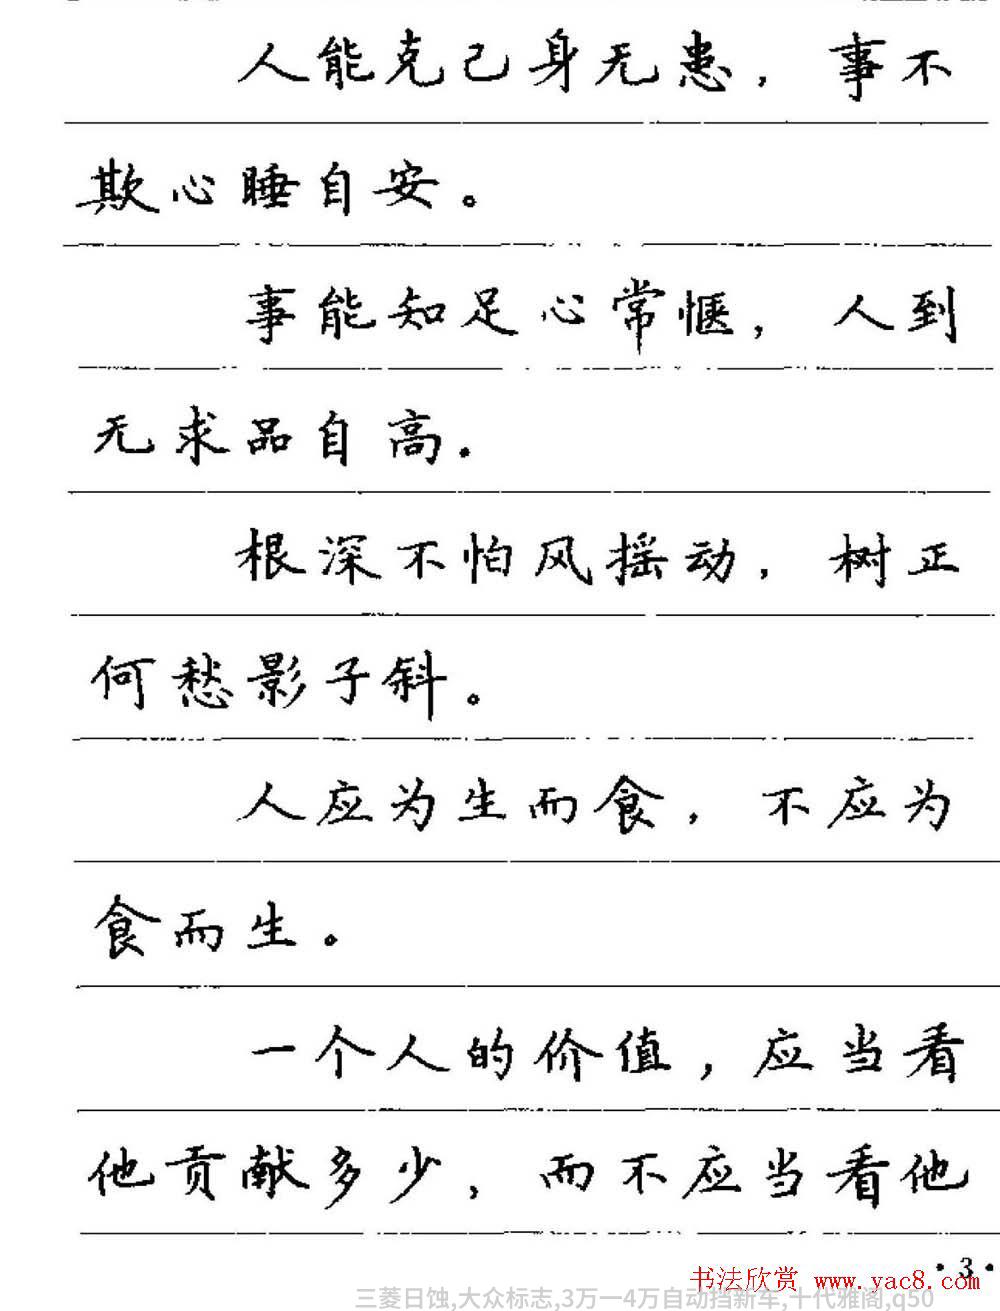 人能克己身无患，事不
欺心睡自安。
事能知足心常惬，人到
无求品自高。
根深不怕风摇动，树正
何愁影子斜。
人应为生而食，不应为
食而生。
一个人的价值，应当看
他贡献多少，而不应当看他
·3·
书法欣赏 www.yac8.com
三菱日蚀,大众标志,3万一4万自动挡新车,十代雅阁,q50